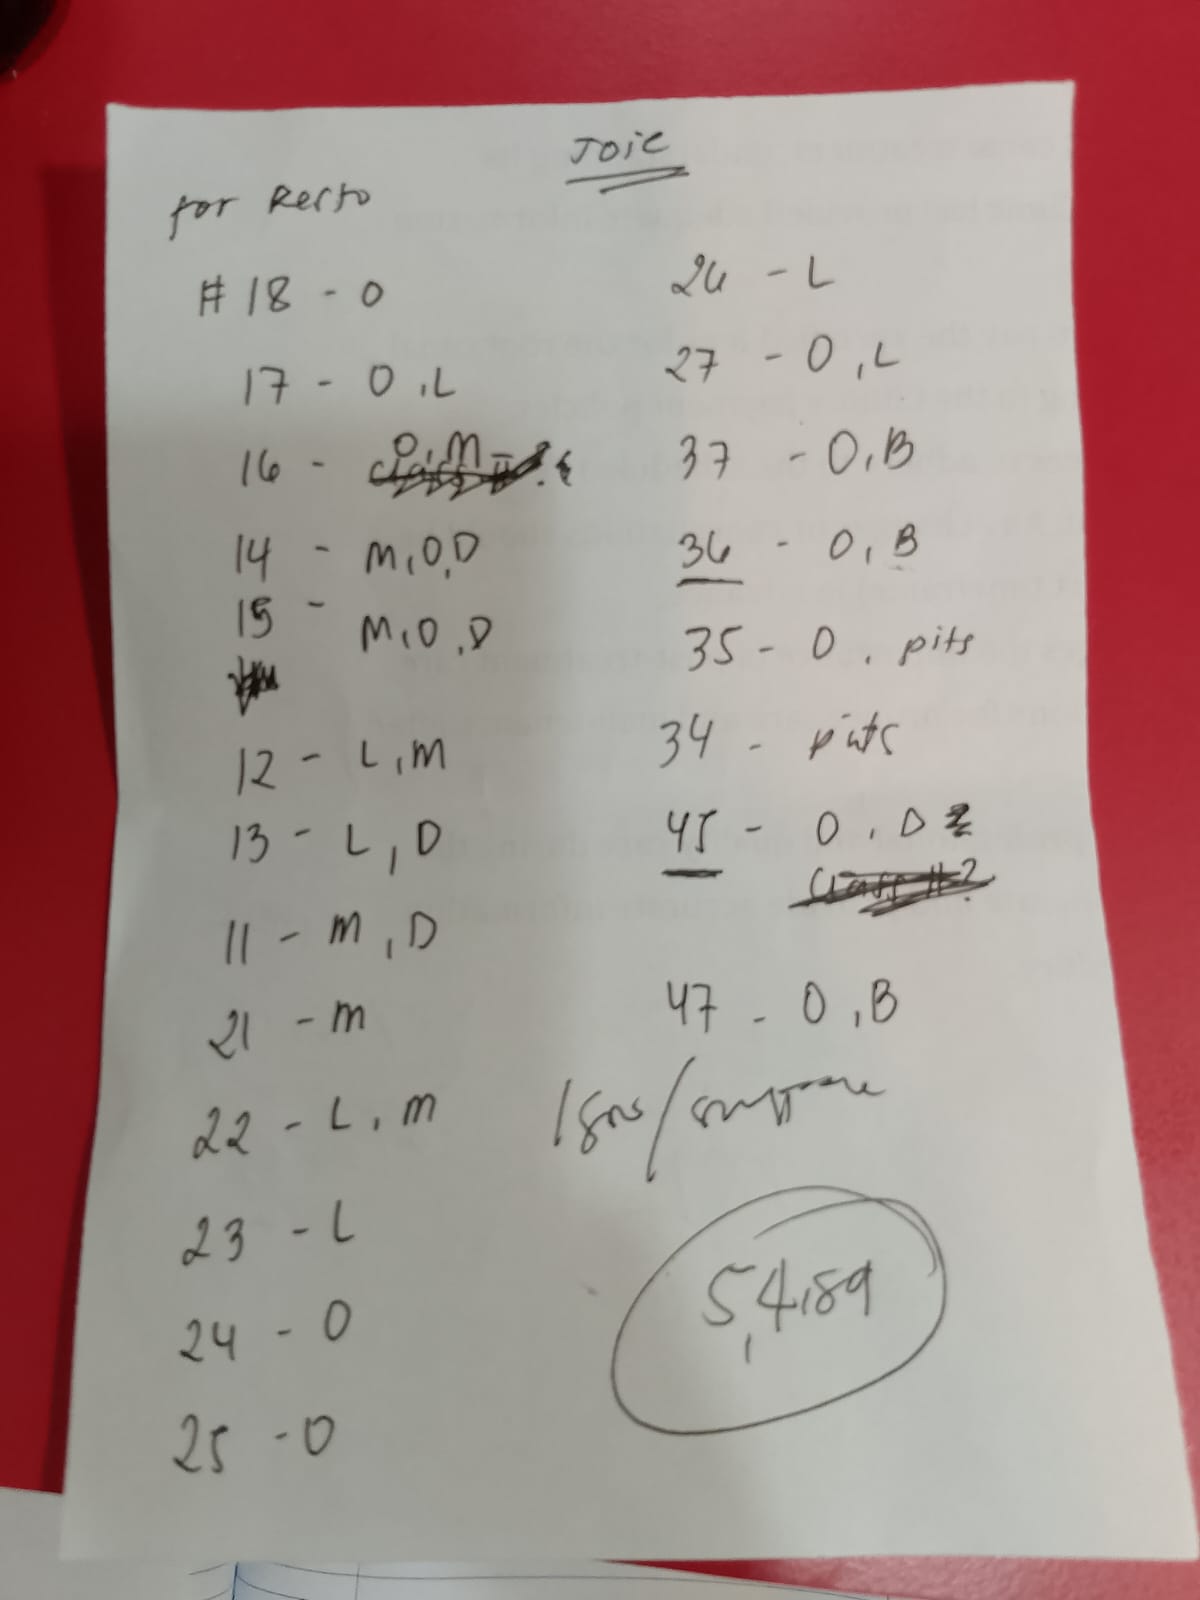 JOIE
for Resto
#18 - O
17 - O, L
16 - O, M
14 - M, O, D
15 - M, O, D
12 - L, M
13 - L, D
11 - M, D
21 - M
22 - L, M
23 - L
24 - O
25 - O
26 - L
27 - O, L
37 - O, B
36 - O, B
35 - O, pits
34 - pits
45 - O, D
47 - O, B